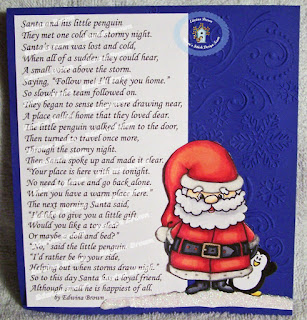 Santa and his little penguin
They met one cold and stormy night.
Santa's team was lost and cold,
When all of a sudden they could hear,
A small voice above the storm.
Saying, "Follow me! I'll take you home."
So slowly the team followed on.
They began to sense they were drawing near,
A place called home that they loved dear.
The little penguin walked them to the door,
Then turned to travel once more,
Through the stormy night.
Then Santa spoke up and made it clear.
"Your place is here with us tonight.
No need to leave and go back alone.
When you have a warm place here."
The next morning Santa said,
"I'd like to give you a little gift.
Would you like a toy clear?
Or maybe a and bed?"
"No," said the little penguin.
"I'd rather be by your side,
Helping out when storms draw nigh."
So to this day Santa has a loyal friend,
Although small he is happiest of all.
by Edwina Brown
Edwina Brown